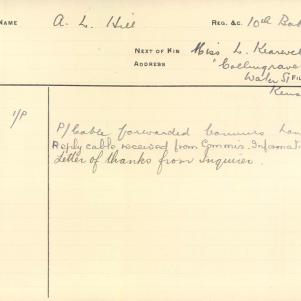 NAME A. L. Hill REG. &C. 10th Bat
NEXT OF KIN Miss L.
ADDRESS "Collingrave
Water St
Kens
I/P P/Cable forwarded
Reply cable received from Commis. Informati
Letter of thanks from Inquirer.